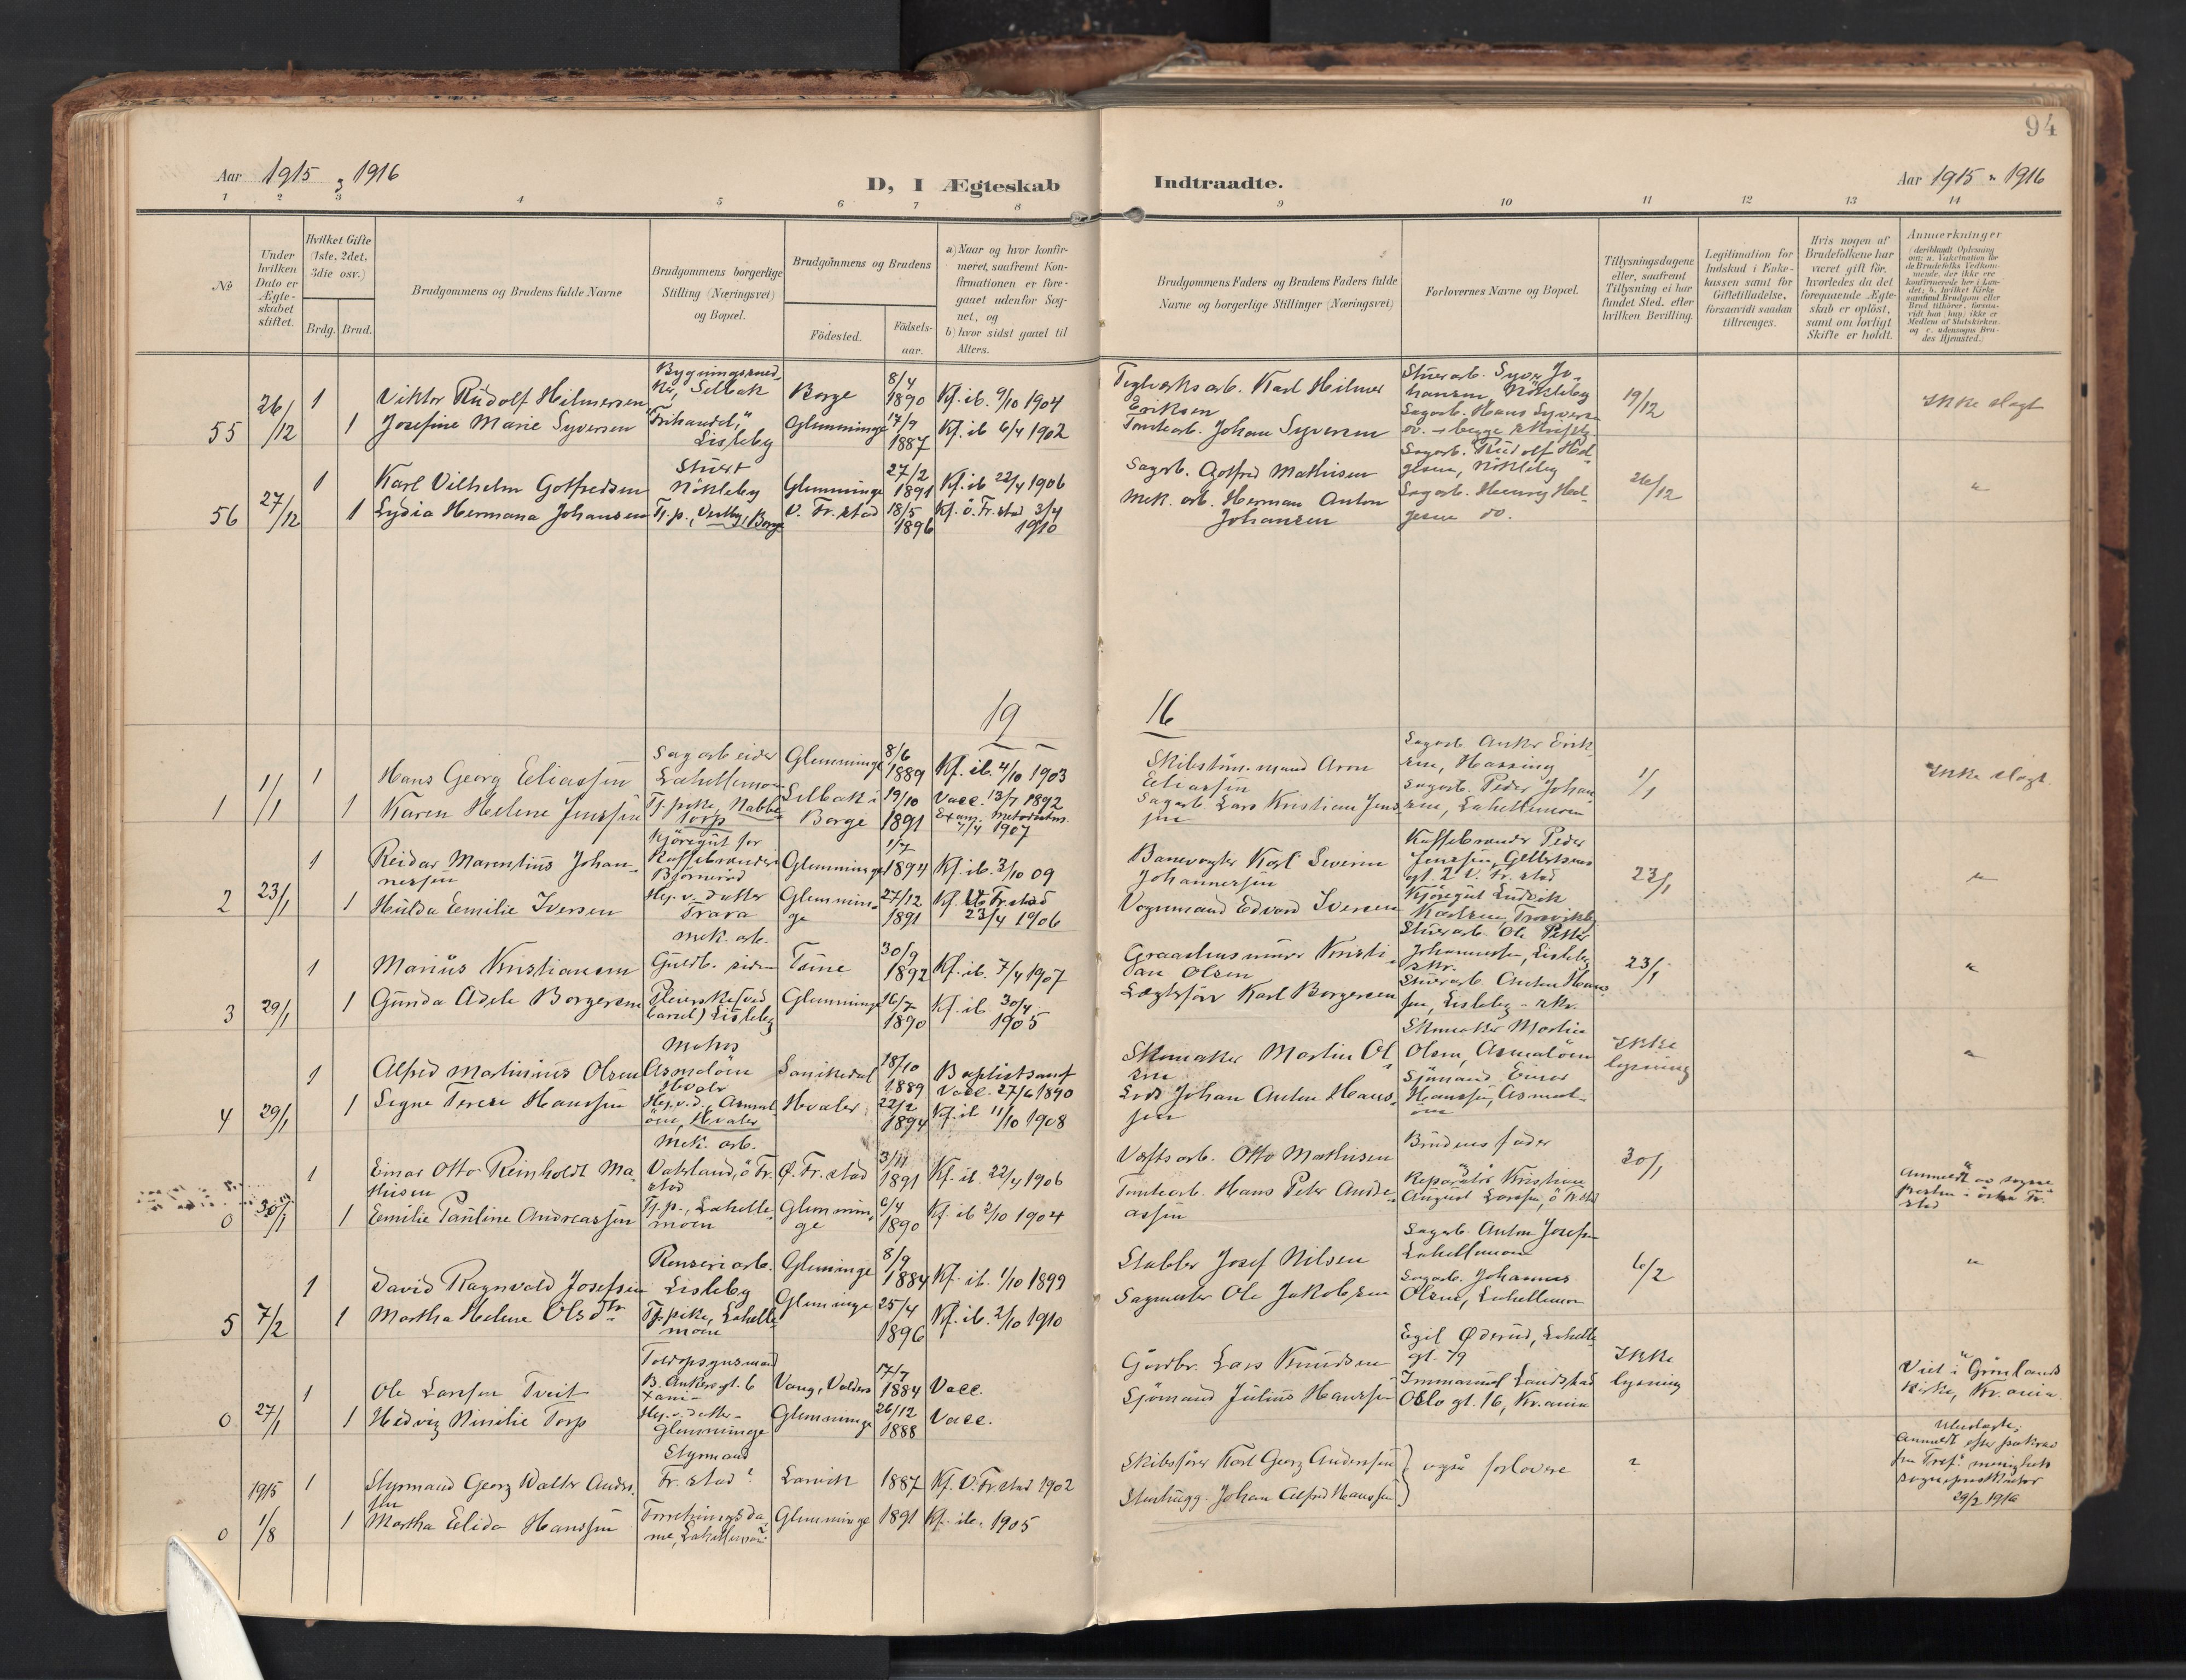 94
Aar 1915 3 1916
D, I Ægteskab Indtraadte.
Aar 1915 1916
1 2 3 4 5 6 7 8 9 10 11 12 13 14
No
Under hvilken Dato er Ægteskabet stiftet.
Hvilket Gifte (1ste, 2det, 3die osv.)
Brdg. Brud.
Brudgommens og Brudens fulde Navne
Brudgommens borgerlige Stilling (Næringsvei) og Bopæl.
Brudgommens og Brudens
Födested.
Födsels-aar.
a) Naar og hvor konfir-
meret, saafremt Kon-
firmationen er fore-
gaaet udenfor Sog-
net, og
b) hvor sidst gaael til
Alters.
Brudgommens Faders og Brudens Faders fulde
Navne og borgerlige Stillinger (Næringsvei)
Forlovernes Navne og Bopæl.
Tillysningsdagene
eller, saafremt
Tillysning ei har
fundet Sted, efter
hvilken Bevilling.
Legitimation for
Indskud i Enke-
kassen samt for
Giftetilladelse,
forsaavidt saadan
tiltrænges.
Hvis nogen af
Brudefolkene har
været gift för,
hvorledes da det
foregaaende Ægte-
skab er oplöst,
samt om lovligt
Skifte er holdt.
Anmærkninger
55 26/12 1 Viktor Rudolf Hilmersen Selbak Borge 8/4 1890 Kf. ib. 9/10 1904
Teglverksarb. Karl Hilmer Eriksen
19/12 Ikke slegt
1 Josefine Marie Syversen "Frihandel", Lisleby Glemminge 17/9 1887 Kf. ib 6/4 1902
Tomtearb. Johan Syversen
56 27/12 1 Karl Vilhelm Gotfredsen Stuert Nökleby Glemminge 27/2 1891 Kf. ib 22/4 1906
Sagarb. Gotfred Mathisen Sagarb. Rudolf Helgesen, Nökleby 26/12 "
1 Lydia Hermana Johansen Tj. p., Vestby, Borge V. Fr. stad 18/5 1896 Kf. ö. Fr. stad 3/4 1910
Mek. arb. Herman Anton Johansen Sagarb. Henry Helgesen do.
19 16
1 1/1 1 Hans Georg Eliassen Sagarbeider Lahellemoen Glemminge 8/6 1889 Kf. ib. 4/10 1903
Skibstöm.mand Aron Eliassen Sagarb. Anker Eriksen, Hassing 1/1 Ikke slegt.
1 Karen Helene Jenssen Tj. pike, Nabbetorp Selbak i Borge 19/10 1891 Vacc. 13/7 1892 Exam. Metodistm. 7/4 1907
Sagarb. Lars Kristian Jenssen Sagarb. Peder Johansen, Lahellemoen
2 23/1 1 Reidar Marentius Johannessen Kjöregut for Kaffebrænderi Björnerød Glemminge 1/7 1894 Kf. ib. 3/10 09
Banevogter Karl Severin Johannessen Kaffebrænder Peder Jenssen, gt. 2 V. Fr. stad 23/1 "
1 Hulda Emilie Iversen Hj. v. datter Trara Glemminge 27/12 1891 Kf. V. Fr. stad 23/4 1906
Vognmand Edvard Iversen Kjöregut Ludvik Karlsen,
3 29/1 1 Marius Kristiansen Mek. arb. Tune 30/9 1892 Kf. ib. 7/4 1907
Graastensmurer Kristian Olsen Stuerarb. Ole Petter Johannessen, Lisleby 23/1 "
1 Gunda Adele Borgersen Pleierske (ved barsel) Lisleby Glemminge 16/7 1890 Kf. ib 30/4 1905
Lægtsför Karl Borgersen Stuerarb. Anton Hanssen, Lisleby
4 29/1 1 Alfred Martinius Olsen Matros Asmalöen Hvaler Sannikedal 18/10 1889 Baptistsamf Vacc. 27/6 1890
Skomaker Martin Olsen Skomaker Martin Olsen, Asmalöen Ikke lysning "
1 Signe Terese Hanssen Hj. v. d., Asmalöen, Hvaler Hvaler 22/2 1894 Kf. ib 11/10 1908
Lods Johan Anton Hanssen Sjömand Einar Hanssen, Asmalöen
0 30/1 1 Einar Otto Reinholdt Mathisen Mek. arb. Vaterland, ö Fr. stad Ø. Fr. stad 3/11 1891 Kf. ib. 22/4 1906
Værftsarb. Otto Mathisen Brudens fader 30/1 Anmeldt av sognepresten i östre Fr. stad
1 Emilie Pauline Andreassen Tj. p., Lahellemoen Glemminge 6/4 1890 Kf. ib 2/10 1904
Tomtearb. Hans Peter Andreassen Reparatör Kristian August Larssen, ö Fr. stad
5 7/2 1 David Ragnvald Josefsen Renseriarb. Lisleby Glemminge 8/9 1884 Kf. ib. 1/10 1899
Stabler Josef Nilsen Sagarb. Anton Josefsen Lahellemoen 6/2 "
1 Martha Helene Olsdtr Tj. pike, Lahellemoen Glemminge 25/4 1896 Kf. ib. 2/10 1910
Sagmester Ole Jakobsen Sagarb. Johannes Olsen, Lahellemoen
0 27/1 1 Ole Larssen Tveit Toldopsynsmand B. Ankersgt. 6 Kr.ania Vang, Valders 17/7 1884 Vacc.
Gardbr. Lars Knudsen Egil Øderud, Lakkegt. 79 Ikke lysning Viet i Grönlands kirke, Kr.ania
1 Hedvig Torp Hj. v. datter - Glemminge Glemminge 26/12 1888 Vacc.
Sjömand Julius Hanssen Immanuel Landstad Oslo gt. 16, Kr.ania
0 1915 1/8 1 Styrmand Georg Walter Anderssen Styrmand Fr. stad? Larvik 1887 Kf. V. Fr. stad 1902
Skibsförer Karl Georg Anderssen også forlovere ? Anmeldt efter
1 Martha Elida Hanssen Forretningsdame, Lahellemoen Glemminge 1891 Kf. ib. 1905
Stenhugg. Johan Alfred Hanssen 29/2 1916